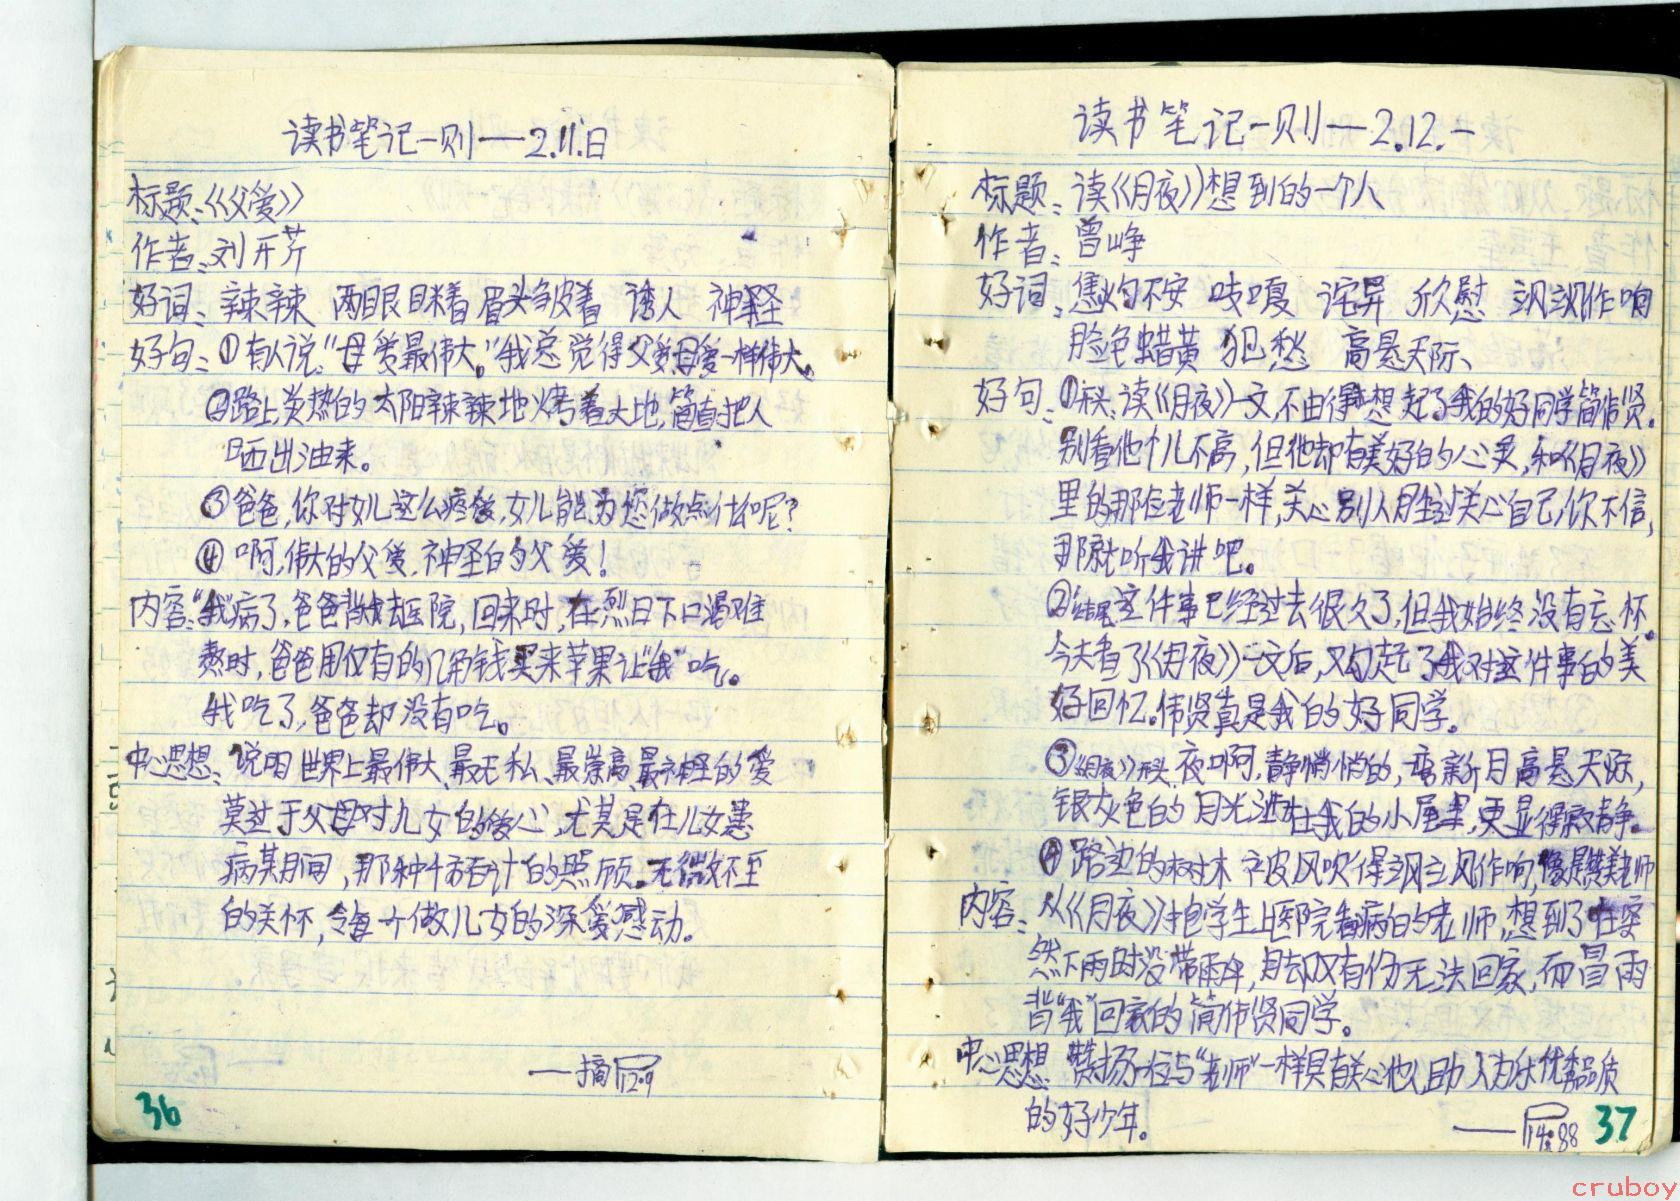 读书笔记一则——2.11.日
标题：《父爱》
作者：刘牙芹
好词：辣辣 两眼眯着 眉头皱着 诱人 神圣
好句：①有人说：“母爱最伟大。”我总觉得父爱母爱一样伟大。
②路上，炎热的太阳辣辣地烤着大地，简直把人
晒出油来。
③爸爸，你对女儿这么疼爱，女儿能为您做点什么呢？
④啊，伟大的父爱，神圣的父爱！
内容：“我”病了，爸爸背我去医院，回来时，在烈日下口渴难
熬时，爸爸用仅有的几角钱买来苹果让“我”吃。
我吃了，爸爸却没有吃。
中心思想：说明世界上最伟大、最无私、最崇高、最神圣的爱
莫过于父母对儿女的爱心，尤其是在儿女患
病期间，那种千方百计的照顾。无微不至
的关怀，令每个做儿女的深受感动。
——摘 12.9
36
读书笔记一则——2.12.一
标题：读《月夜》想到的一个人
作者：曾峥
好词：焦灼不安 吱嘎 诧异 欣慰 飒飒作响
脸色蜡黄 犯愁 高悬天际、
好句：①开头：读《月夜》一文，不由得我想起了我的好同学简伟贤。
别看他个儿不高，但他却有美好的心灵，和《月夜》
里的那位老师一样，关心别人胜过关心自己，你不信，
那就听我讲吧。
②结尾：这件事已经过去很久了，但我始终没有忘怀。
今天看了《月夜》一文后，又勾起了我对这件事的美
好回忆。伟贤真是我的好同学。
③《月夜》开头：夜啊，静悄悄的，一弯新月高悬天际，
银灰色的月光洒在我的小屋里，更显得寂静。
④路边的树木被风吹得飒飒作响，像是赞美老师
内容：从《月夜》中抱学生上医院看病的老师，想到了在突
然下雨时没带雨伞，自己却又有伤无法回家，而冒雨
背“我”回家的简伟贤同学。
中心思想：赞扬了一位与“老师”一样具有关心他人，助人为乐优秀品质
的好少年。
——14:88
37
cruboy